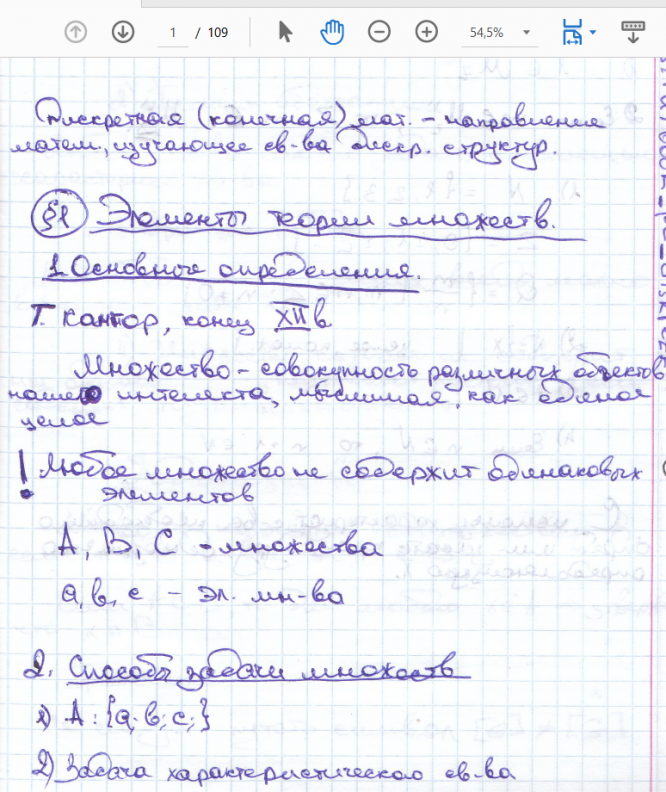 1 / 109 54,5%
Дискретная (конечная) мат. - направление
матем, изучающее св-ва дискр. структур.
§1 Элементы теории множеств.
1. Основные определения.
Г. Кантор, конец XII в
Множество - совокупность различных объектов
нашего интелекта, мыслимая, как единое
целое
! Любое множество не содержит одинаковых
элементов
A, B, C - множества
a, b, c - эл. мн-ва
2. Способы задачи множеств
1) A: {a; b; c;}
2) Задача характеристического св-ва